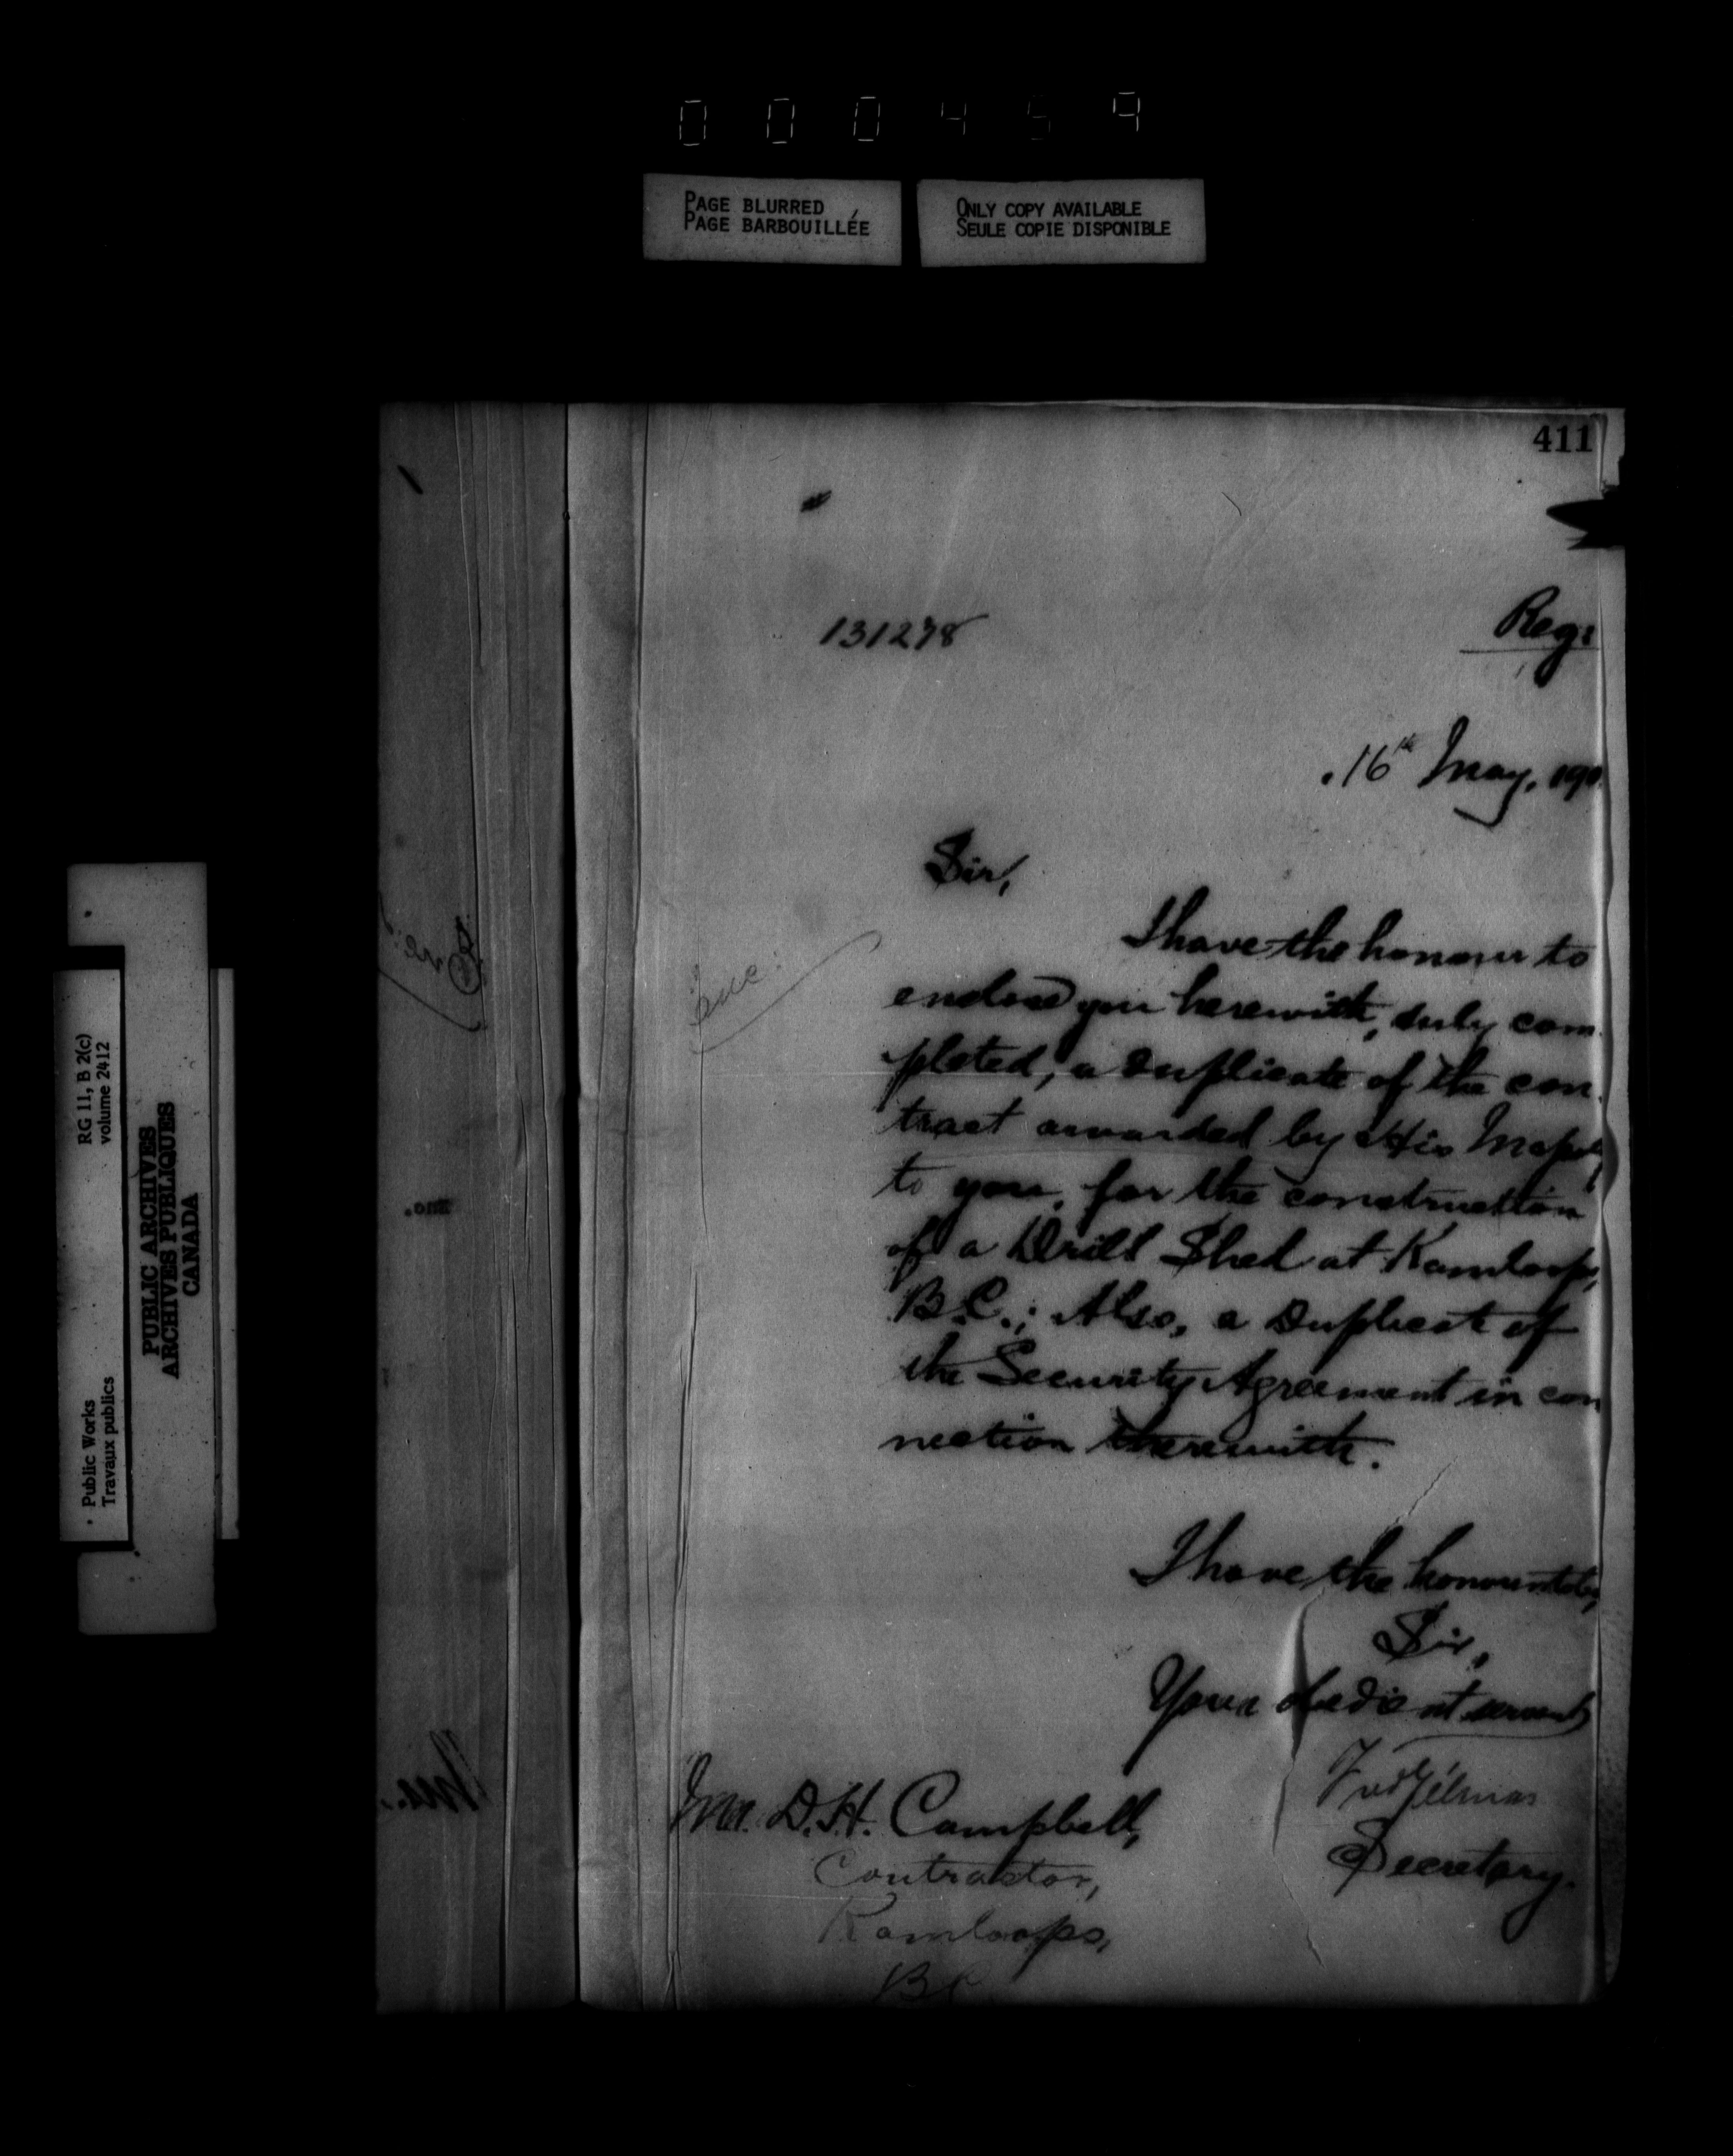 000459
PAGE BLURRED
PAGE BARBOUILLÉE
ONLY COPY AVAILABLE
SEULE COPIE DISPONIBLE
RG 11, B 2(c)
volume 2412
Public Works
Travaux publics
PUBLIC ARCHIVES
ARCHIVES PUBLIQUES
CANADA
411
131278
Reg:
16th May, 190
Sir,
I have the honour to
Enc:
enclose you herewith, duly com
pleted, a Duplicate of the con
tract awarded by His Majesty
to you, for the construction
of a Drill Shed at Kamloops,
B.C.; Also, a Duplicate of
the Security Agreement in con
nection therewith.
I have the honour to be,
Sir,
Your obedient servant
Fred Gélinas
Secretary.
Mr. D. H. Campbell,
Contractor,
Kamloops,
B C